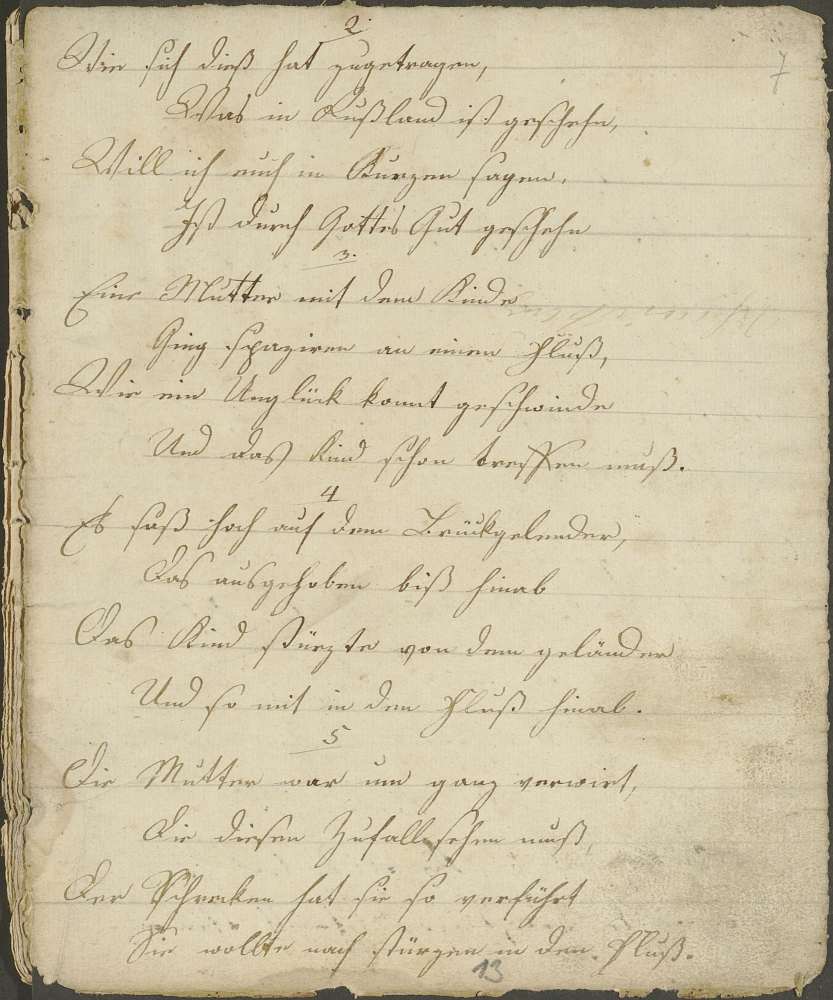 2.
7
Wie sich dieß hat zugetragen,
Was in Rußland ist geschehn,
Will ich euch in Kurzen sagen,
Ist durch Gottes Gut geschehn
3.
Eine Mutter mit dem Kinde
Ging spaziren an einen Fluß,
Wie ein Unglück komt geschwinde
Und das Kind schon treffen muß.
4
Es saß hoch auf dem Brückgelender,
Das ausgehoben biß hinab
Das Kind stürzte von dem geländer
Und so mit in den Fluß hinab.
5
Die Mutter war um ganz verwirt,
Die diesen Zufall sehen muß,
Der Schrecken hat sie so verführt
Sie wollte nach stürzen in den Fluß.
13